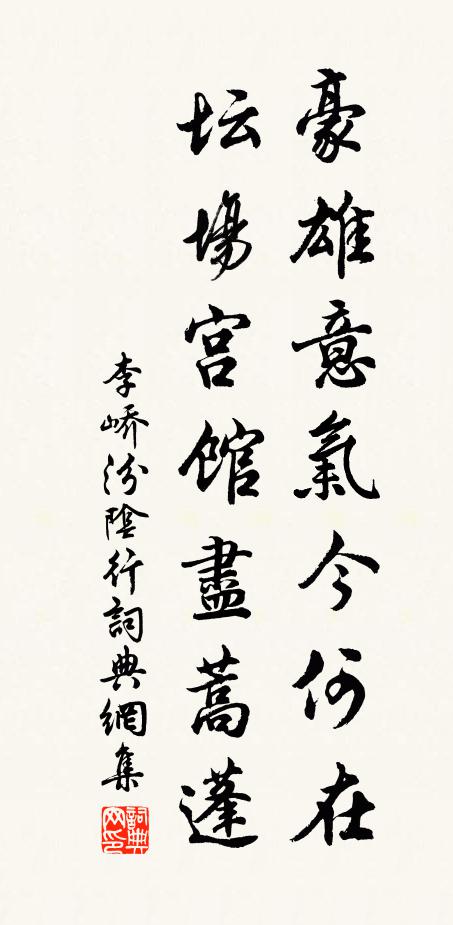 豪雄意氣今何在
坛場宫館盡蒿蓬
李嶠汾陰行詞典網集
詞典网印